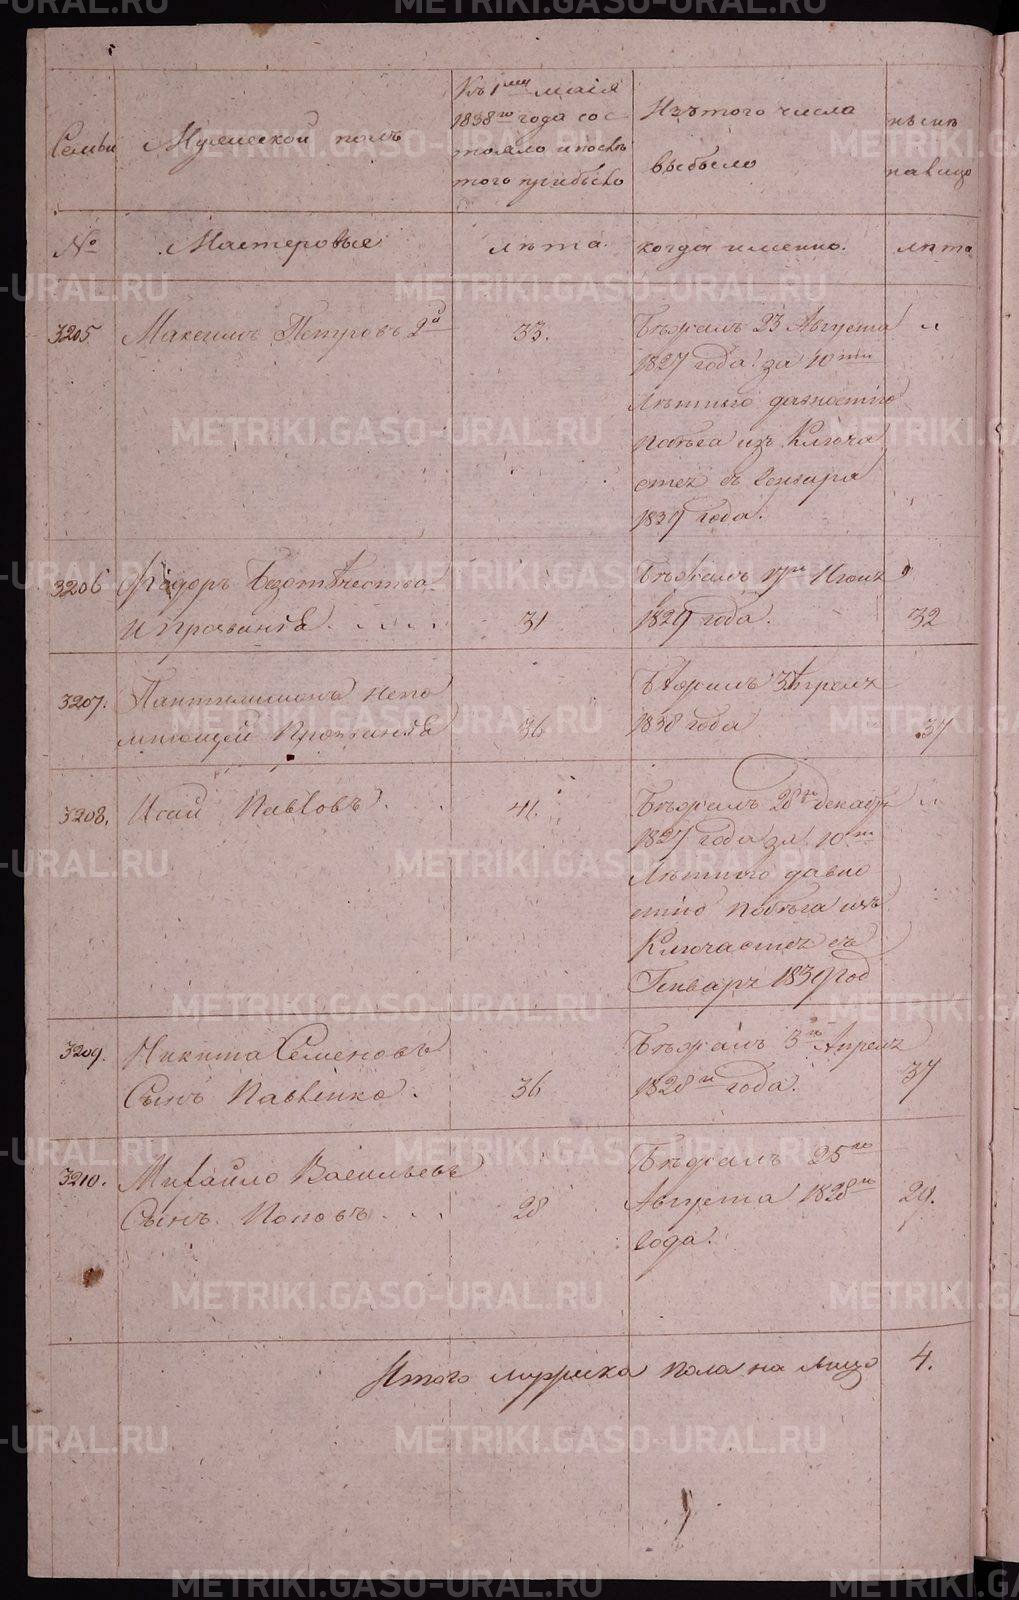 Семьи
Мужеской полъ
Къ 1му маія
1838го года сос
тояло и послѣ
того прибыло
Изъ того числа
выбыло
нынѣ
налицо
№
Мастеровые
лѣта.
когда именно.
лѣта
3205
Максимъ Петровъ 2й
33.
Бѣжалъ 23 Августа
1827 года. за 10ти
лѣтнею давностію
побѣга изъ
съ Генваря
1839 года.
3206
Федоръ безотечества
и прозванія
31
Бѣжалъ Июня
1829 года.
32
3207.
Пантилимонъ непо
мнющей Прозванія
36
Бѣжалъ 3 Апреля
1838 года
37
3208.
Исай Павловъ
41.
Бѣжалъ 28го декабр
1827 года за 10ти
лѣтнею давно
стію побѣга изъ
съ
Генваря 1839 год
3209.
Никита Семеновъ
Сынъ Павленко.
36
Бѣжалъ 3го Апреля
1828го года.
37
3210.
Михайло Васильевъ
Сынъ Поповъ
28
Бѣжалъ 25го
Августа 1828го
года.
29.
Итого мужеска пола на лицо 4.
METRIKI.GASO-URAL.RU